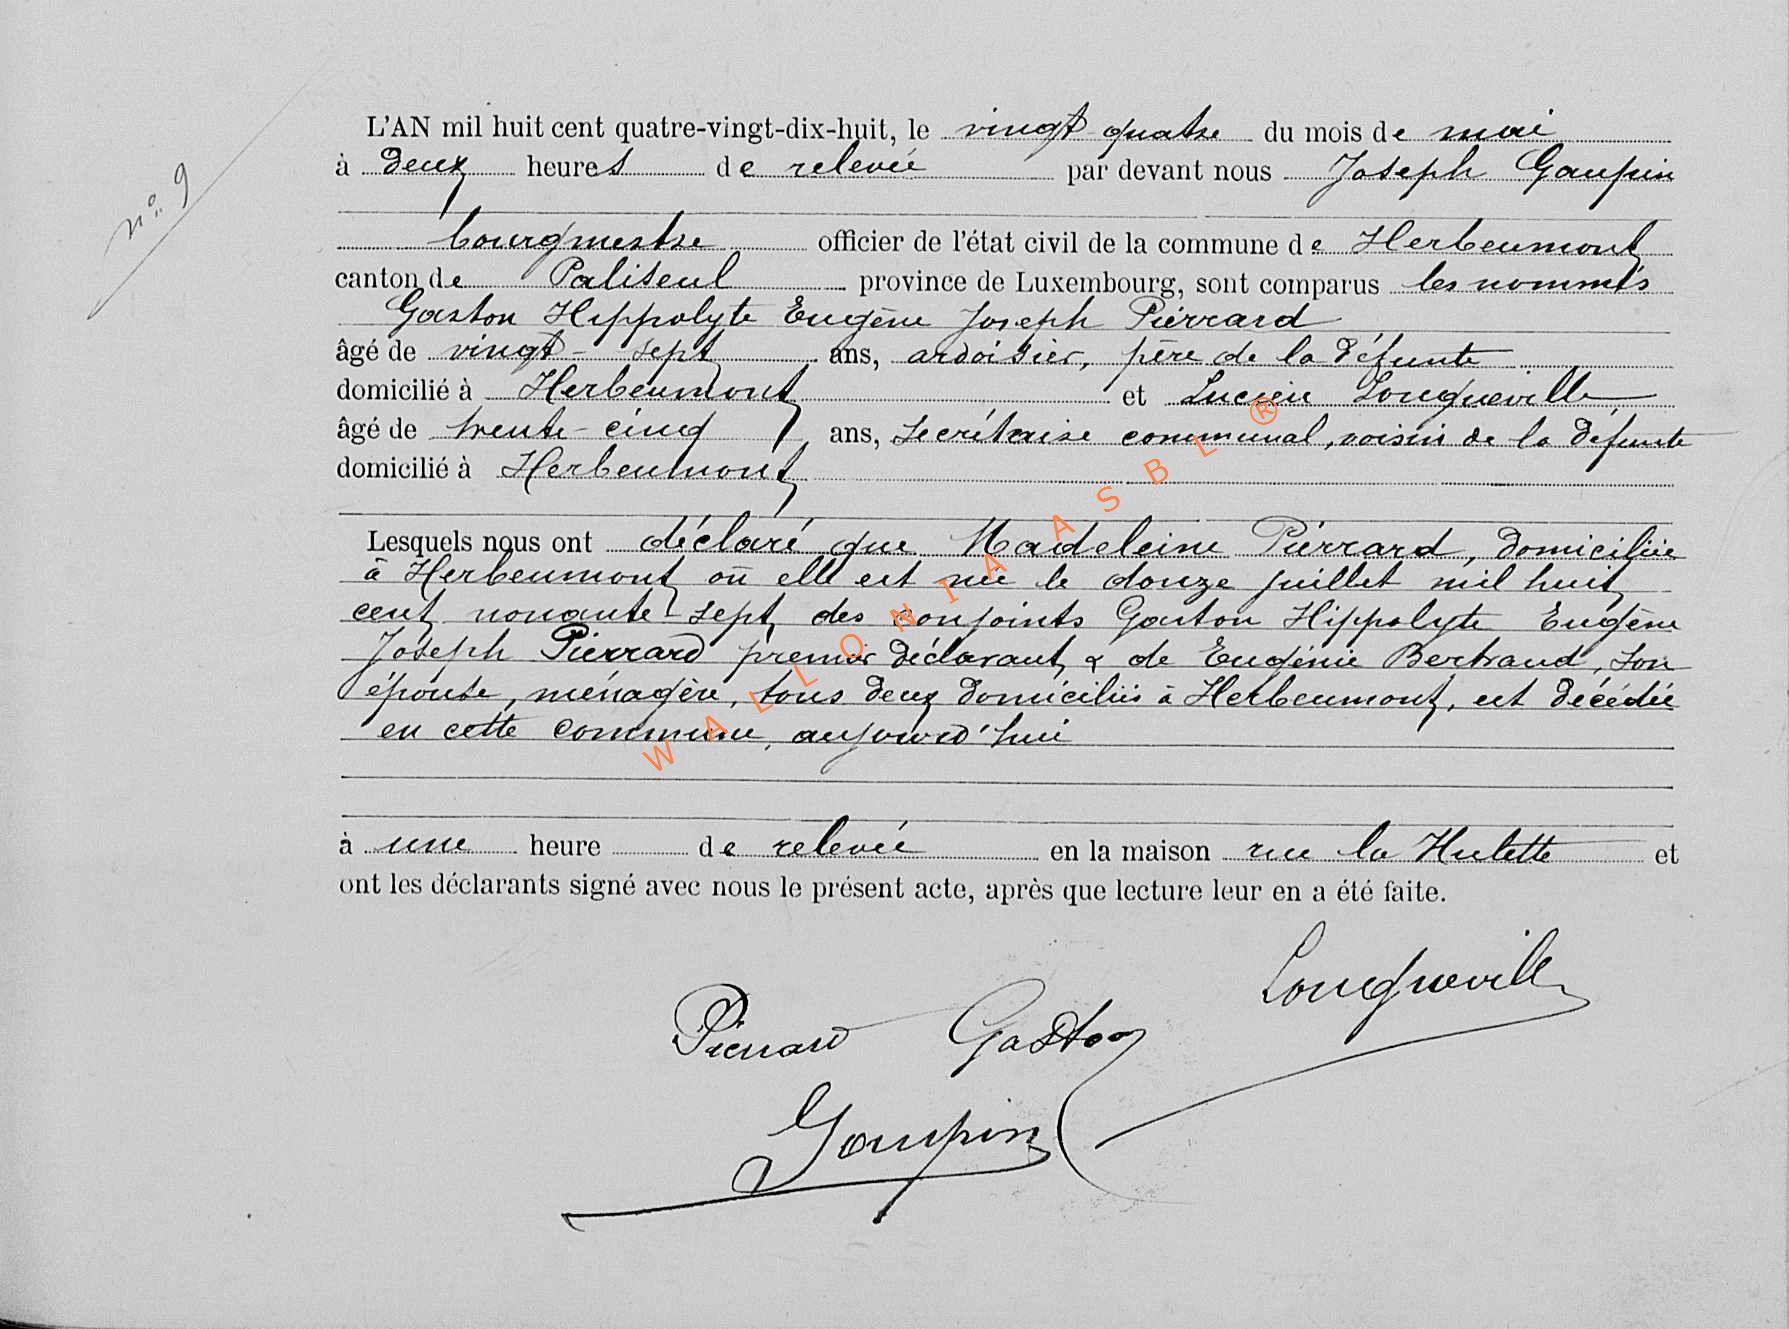 n° 9
L'AN mil huit cent quatre-vingt-dix-huit, le vingt quatre du mois de mai
à deux heures de relevée par devant nous Joseph Gaupin
bourgmestre officier de l'état civil de la commune de Herbeumont
canton de Paliseul province de Luxembourg, sont comparus les nommés
Gaston Hippolyte Eugène Joseph Piérrard
âgé de vingt-sept ans, ardoisier, père de la défunte
domicilié à Herbeumont et Lucien Longueville
âgé de trente-cinq ans, secrétaire communal, voisin de la défunte
domicilié à Herbeumont
Lesquels nous ont déclaré que Madeleine Piérrard, domiciliée
à Herbeumont où elle est née le douze juillet mil huit
cent nonante-sept des conjoints Gaston Hippolyte Eugène
Joseph Pierrard premier déclarant & de Eugénie Bertrand, son
épouse, ménagère, tous deux domiciliés à Herbeumont, est décédée
en cette commune, aujourd'hui
à une heure de relevée en la maison rue la Hulette et
ont les déclarants signé avec nous le présent acte, après que lecture leur en a été faite.
Longueville
Pierrard Gaston
Gaupin
WALLONIA ASBL ®